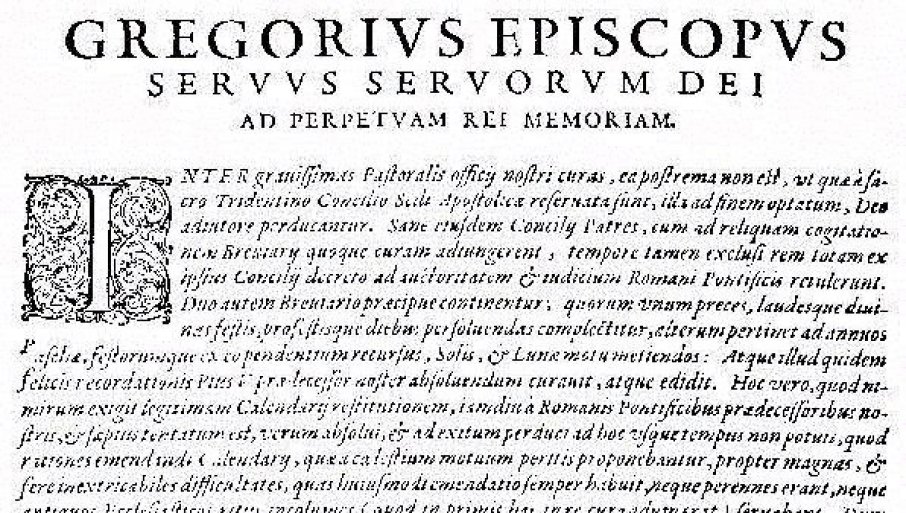 GREGORIVS EPISCOPVS
SERVVS SERVORVM DEI
AD PERPETVAM REI MEMORIAM.
INTER grauiſſimas Paſtoralis officij noſtri curas, ea poſtrema non eſt, vt quæ à ſa-
cro Tridentino Concilio Sedi Apoſtolicæ reſeruata ſunt, illa ad finem optatum, Deo
adiutore perducantur. Sane eiuſdem Concilij Patres, cum ad reliquam cogitatio-
nem Breuiarij quoque curam adiungerent, tempore tamen excluſi rem totam ex
ipſius Concilij decreto ad auctoritatem & iudicium Romani Pontificis retulerunt.
Duo autem Breuiario præcipue continentur, quorum vnum preces, laudesque diui-
nas feſtis, profeſtisque diebus perſoluendas complectitur, alterum pertinet ad annuos
Paſchæ, feſtorumque ex eo pendentium recurſus, Solis, & Lunæ motu metiendos: Atque illud quidem
felicis recordationis Pius V prædeceſſor noſter abſoluendum curauit, atque edidit. Hoc vero, quod ni-
mirum exigit legitimam Calendarij reſtitutionem, iamdiu à Romanis Pontificibus prædeceſſoribus no-
ſtris, & ſæpius tentatum eſt, verum abſolui, & ad exitum perduci ad hoc vſque tempus non potuit, quod
rationes emendandi Calendarij, quæ a cæleſtium motuum peritis proponebantur, propter magnas, &
fere inextricabiles difficultates, quas huiuſmodi emendatio ſemper habuit, neque perennes erant, neque
antiquos Eccleſiaſticos ritus incolumes (quod in primis hac in re curandum erat) ſeruabant.